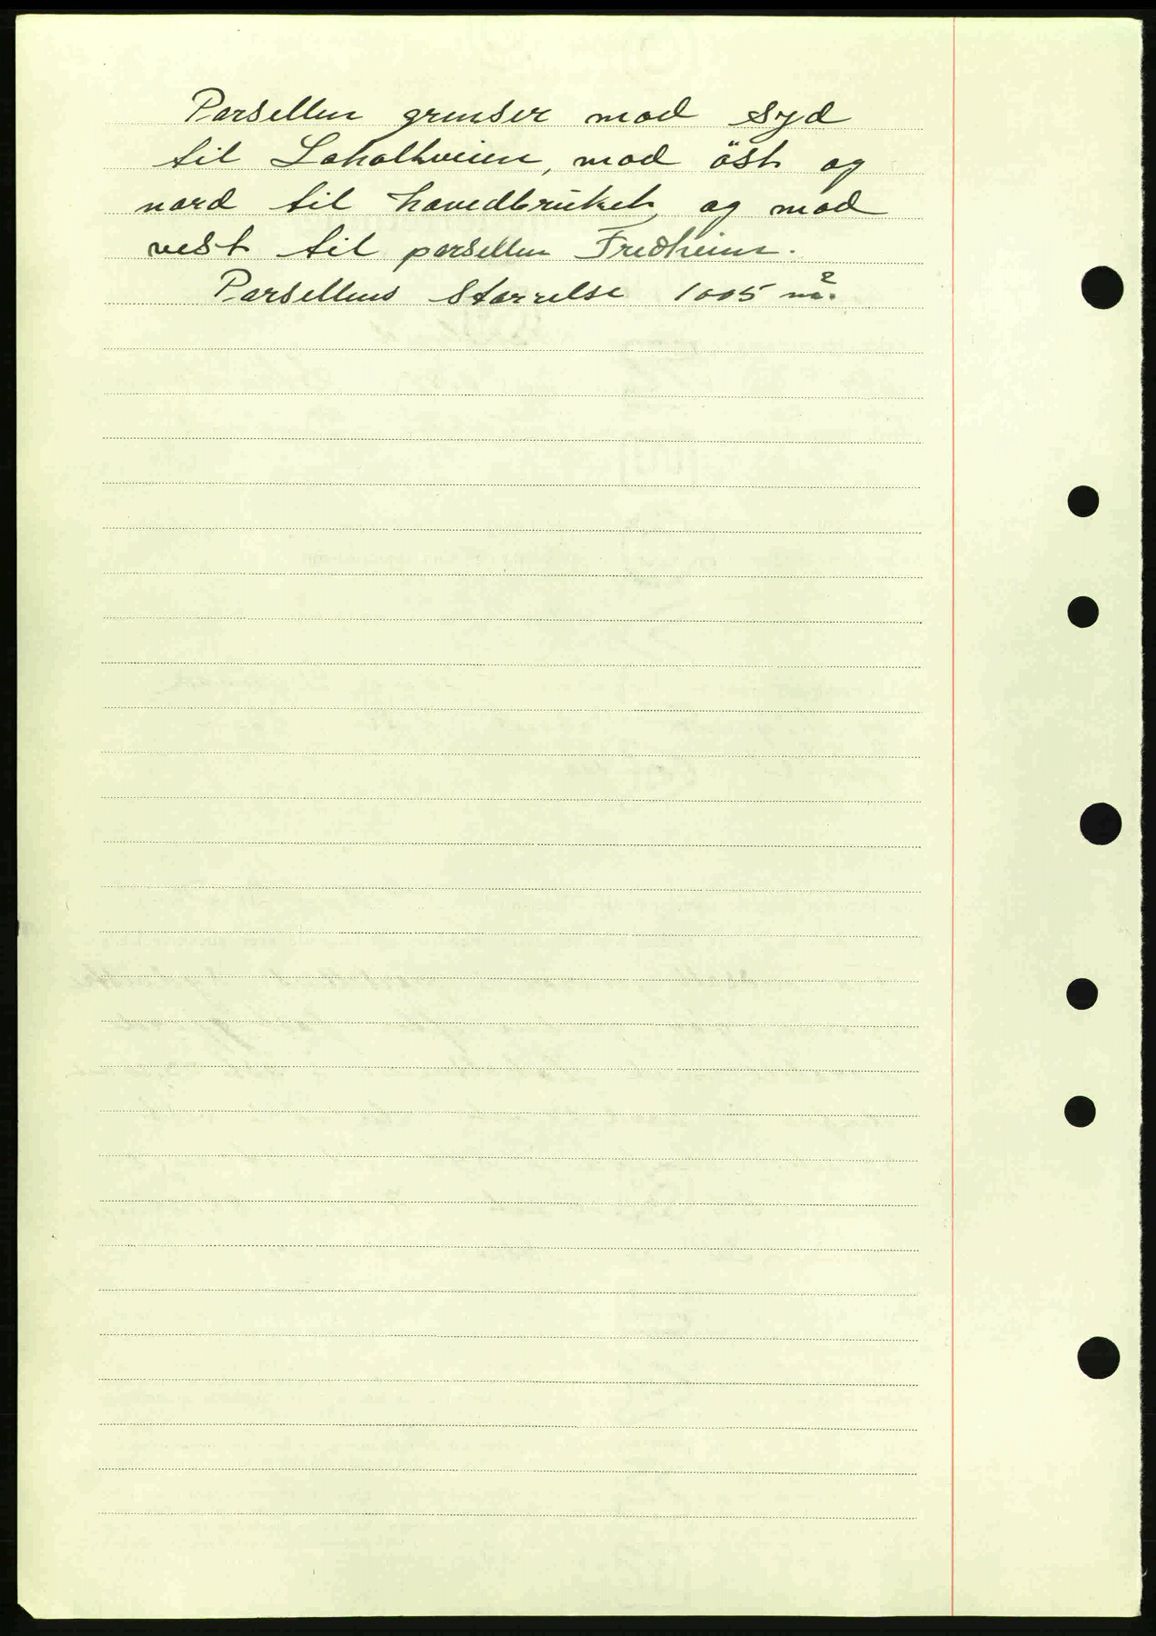 Parsellen grenser mod syd
til Lokalkveien, mod öst og
nord til hovedbrüket, og mod
vest til parsellen Fredheim.
Parsellens Størrelse 1005 m².